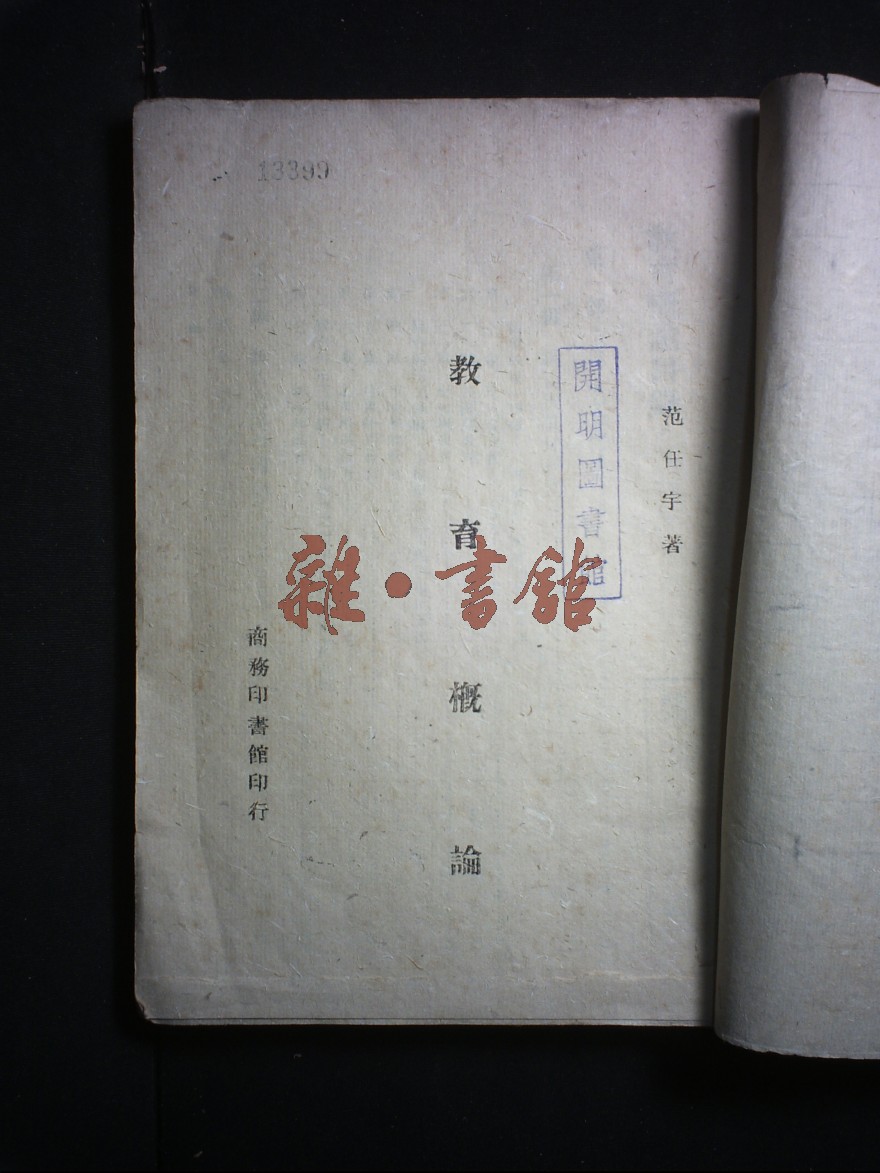 13399
范任宇著
開明圖書館
教育概論
雜·書館
商務印書館印行